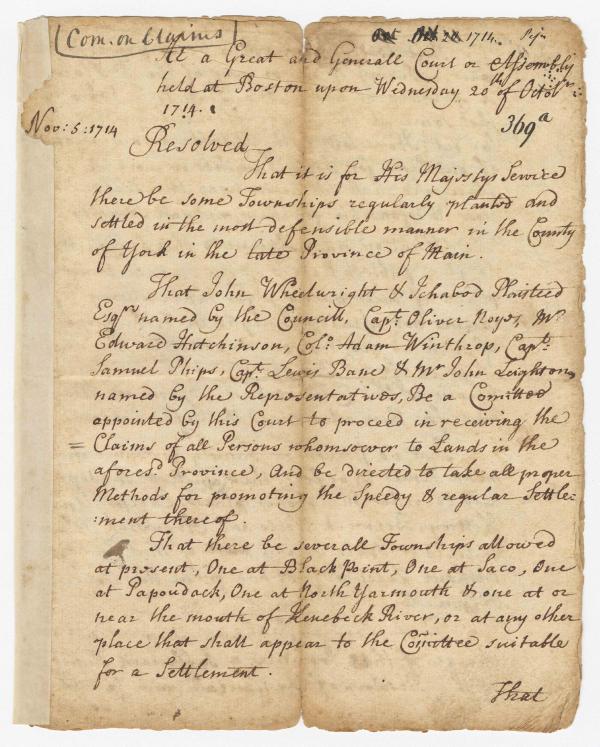 Com. on Claims
Oct 20 1714.
At a Great and Generall Court or Assembly
held at Boston upon Wednesday 20th of Octobr
1714.
Nov: 5: 1714
369a
Resolved
That it is for His Majestys Service
there be some Townships regularly planted and
settled in the most defensible manner in the County
of York in the late Province of Main.
That John Wheelwright & Ichabod Plaisted
Esqrs named by the Councill, Capt. Oliver Noyes, Mr
Edward Hutchinson, Colo. Adam Winthrop, Capt.
Samuel Phips, Capt. Lewis Bane & Mr John Leighton,
named by the Representatives, Be a Comittee
appointed by this Court to proceed in receiving the
= Claims of all Persons whomsoever to Lands in the
aforesd. Province, And be directed to take all proper
Methods for promoting the Speedy & regular Settle:
:ment thereof.
That there be severall Townships allowed
at present, One at Black Point, One at Saco, One
at Papoudack, One at North Yarmouth & one at or
near the mouth of Kenebeck River, or at any other
place that shall appear to the Comittee suitable
for a Settlement.
That